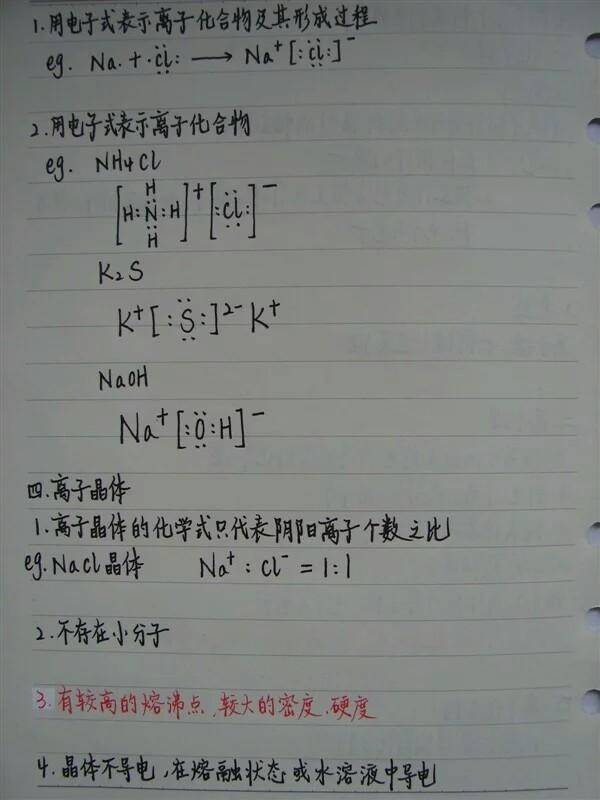 1.用电子式表示离子化合物及其形成过程
eg. Na· + ·Cl: ⟶ Na⁺[:Cl:]⁻
2.用电子式表示离子化合物
eg. NH4Cl
H
[H:N:H]⁺[:Cl:]⁻
H
K₂S
K⁺[:S:]²⁻K⁺
NaOH
Na⁺[:O:H]⁻
四.离子晶体
1.离子晶体的化学式只代表阴阳离子个数之比
eg.NaCl晶体 Na⁺:Cl⁻=1:1
2.不存在小分子
3.有较高的熔沸点,较大的密度、硬度
4.晶体不导电,在熔融状态或水溶液中导电